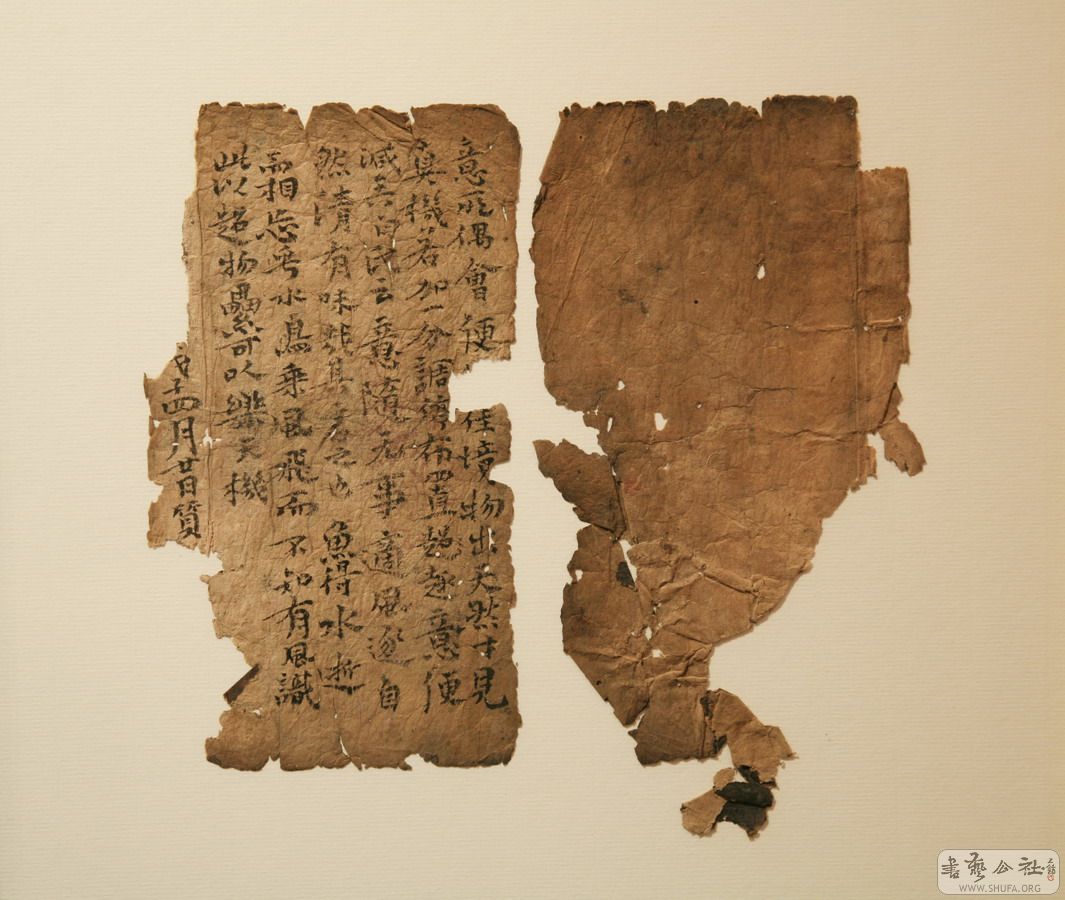 意所偶會便佳境物出天然才見
真機若加一分調停布置趣意便
減矣白氏云意隨无事適風逐自
然清有味哉其言之也 魚得水逝
而相忘乎水鳥乘風飛而不知有風識
此以超物累可以樂天機
子四月廿日質
書藝公社
WWW.SHUFA.ORG